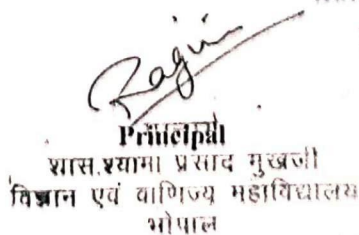 Principal
शास.श्यामा प्रसाद मुखर्जी
विज्ञान एवं वाणिज्य महाविद्यालय
भोपाल